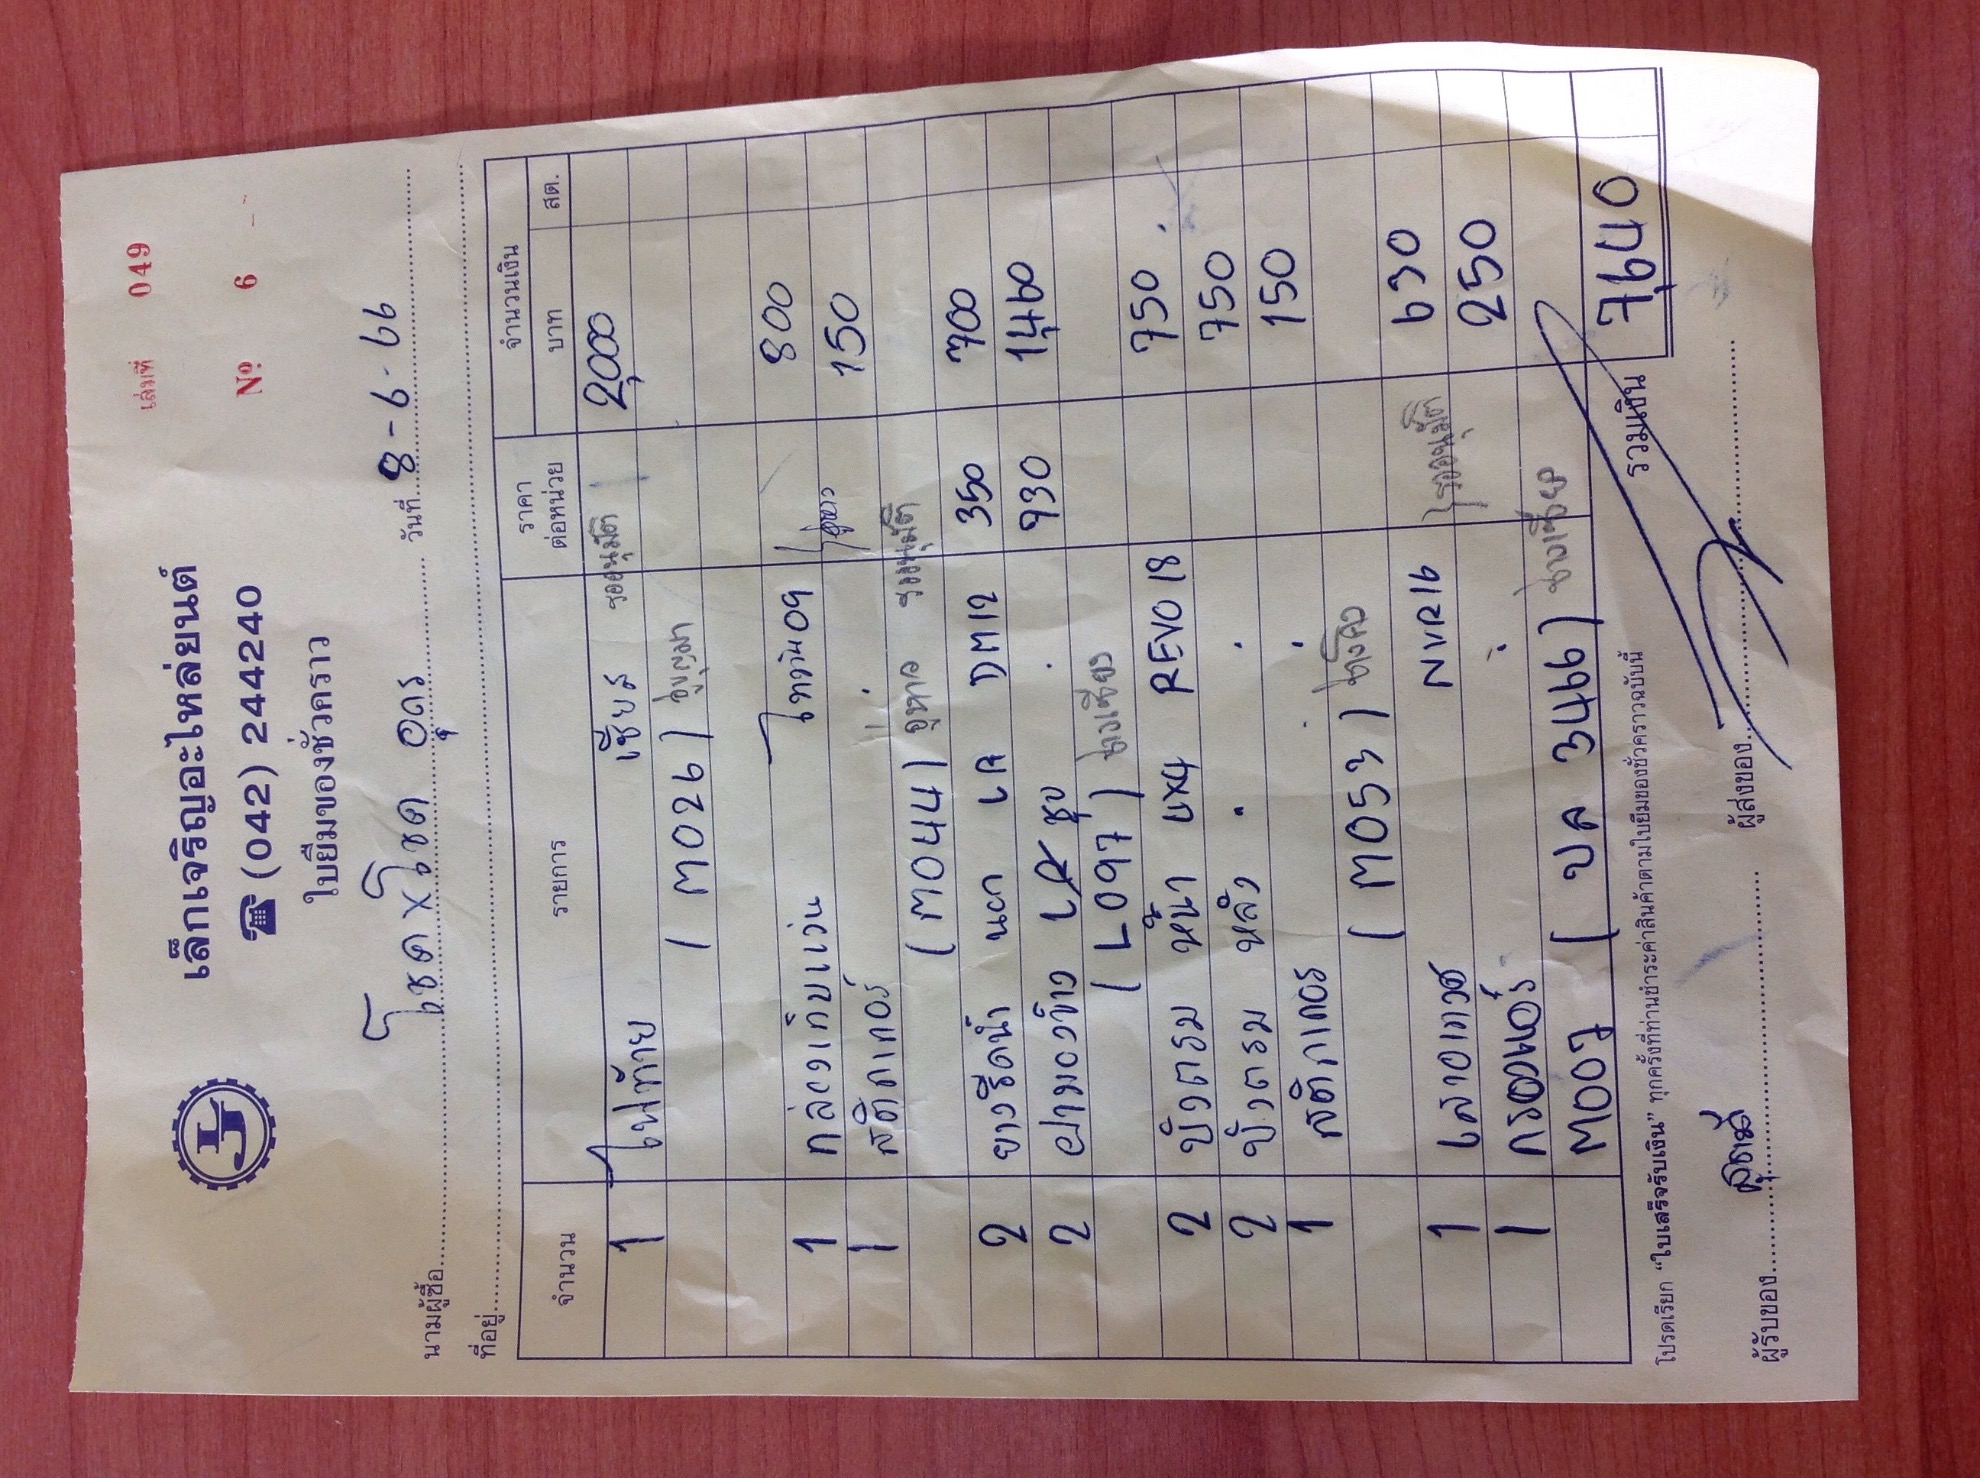 เล่มที่ 049
เล็กเจริญอะไหล่ยนต์
☎ (042) 244240
Nº 6
ใบยืมของชั่วคราว
นามผู้ซื้อ โชค x โชค อุดร วันที่ 8-6-66
ที่อยู่
จำนวน รายการ ราคาต่อหน่วย จำนวนเงิน
บาท สต.
1 ไฟท้าย เซียร์ รออนุมัติ 2,000
(M026)
1 กล่องเก็บแว่น ไททัน09 800
1 สติกเกอร์ 150
(M044) รออนุมัติ
2 ยางรีดน้ำ นอก LR DM12 350 700
2 ฝามองข้าง LR ชุบ 930 1,460
(L097)
2 บังตรม หน้า 4x4 REVO 18 750
2 บังตรม หลัง 750
1 สติกเกอร์ 150
(M053)
1 เสาอากาศ NVR16 630
1 กรองแอร์ 250
M007 (บล 3466)
โปรดเรียก "ใบเสร็จรับเงิน" ทุกครั้งที่ท่านชำระค่าสินค้าตามใบยืมของชั่วคราวฉบับนี้ รวมเงิน 7,640
ผู้รับของ ผู้ส่งของ